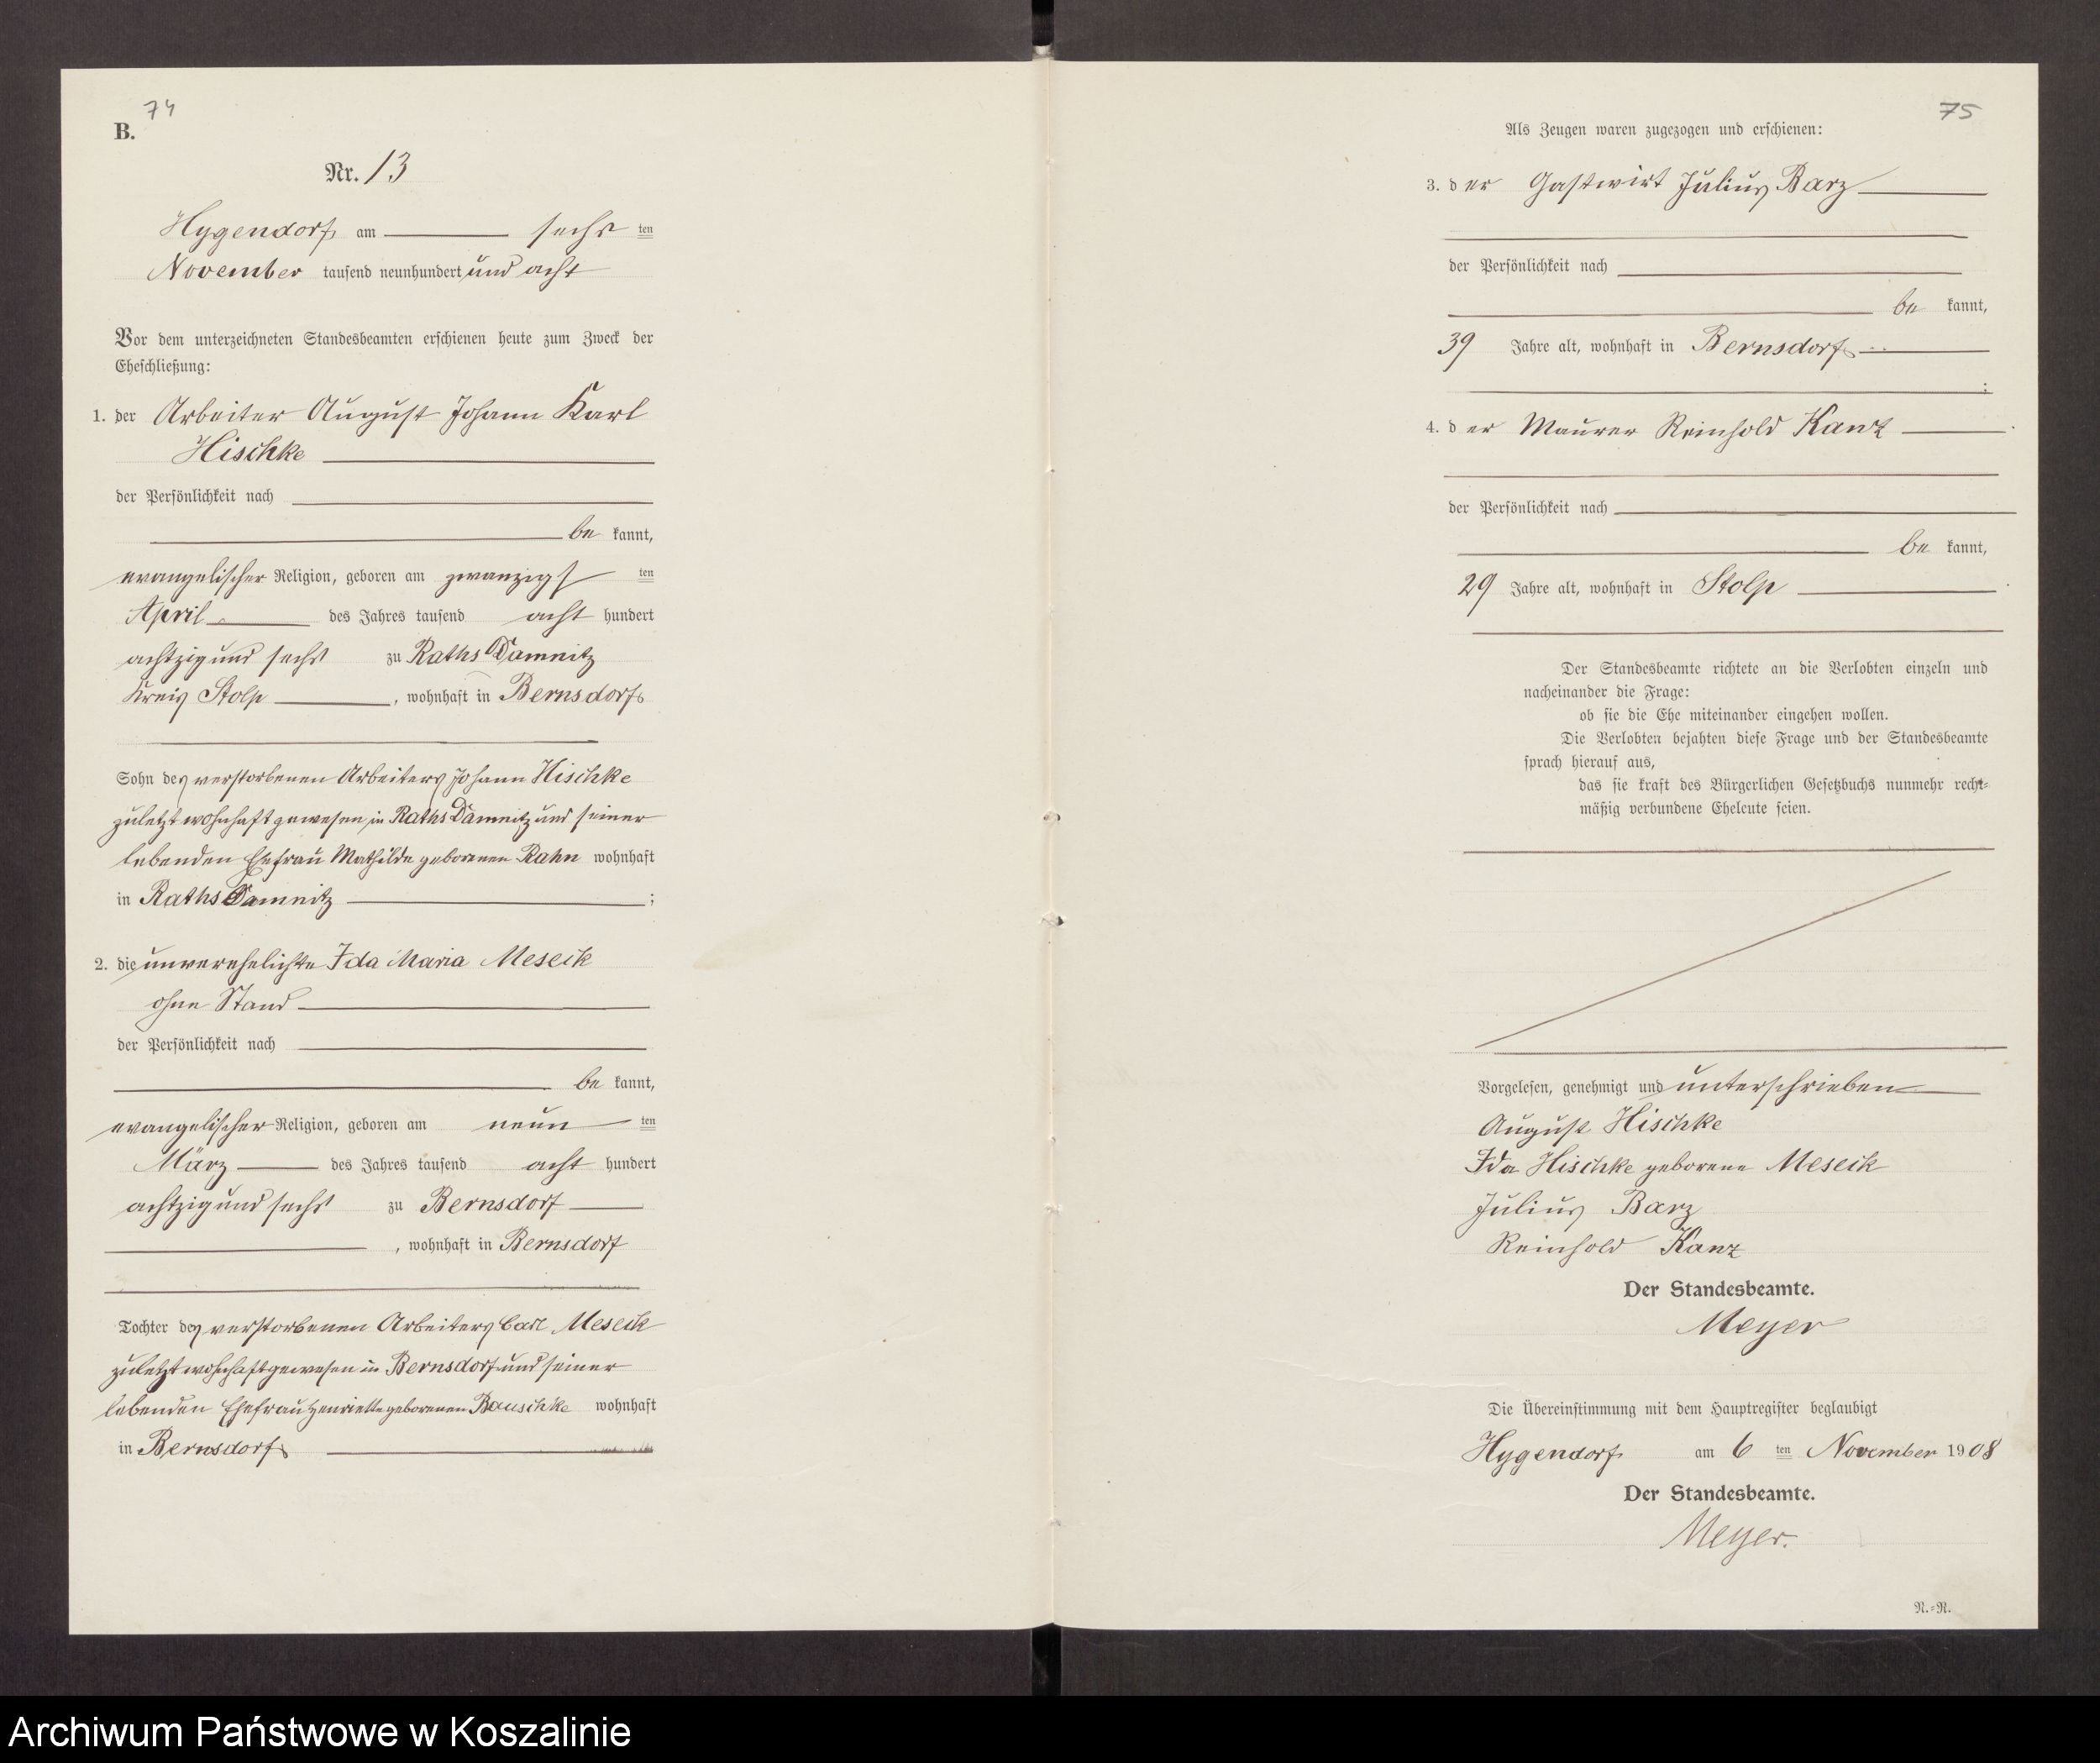 74
B.
Nr. 13
Hygendorf am sechs ten
November tausend neunhundert und acht
Vor dem unterzeichneten Standesbeamten erschienen heute zum Zweck der
Eheschließung:
1. der Arbeiter August Johann Karl
Hischke
der Persönlichkeit nach
be kannt,
evangelischer Religion, geboren am zwanzigs ten
April des Jahres tausend acht hundert
achtzig und sechs zu Raths Damnitz
Kreis Stolp, wohnhaft in Bernsdorf
Sohn des verstorbenen Arbeiters Johann Hischke
zuletzt wohnhaft gewesen in Raths Damnitz und seiner
lebenden Ehefrau Mathilde geborenen Rahn wohnhaft
in Raths Damnitz ;
2. die unverehelichte Ida Maria Meseck
ohne Stand
der Persönlichkeit nach
be kannt,
evangelischer Religion, geboren am neun ten
März des Jahres tausend acht hundert
achtzig und sechs zu Bernsdorf
, wohnhaft in Bernsdorf
Tochter des verstorbenen Arbeiters Carl Meseck
zuletzt wohnhaft gewesen in Bernsdorf und seiner
lebenden Ehefrau Henriette geborenen Rauschke wohnhaft
in Bernsdorf
75
Als Zeugen waren zugezogen und erschienen:
3. der Gastwirt Julius Barz
der Persönlichkeit nach
be kannt,
39 Jahre alt, wohnhaft in Bernsdorf
;
4. der Maurer Reinhold Kanz
der Persönlichkeit nach
be kannt,
29 Jahre alt, wohnhaft in Stolp
Der Standesbeamte richtete an die Verlobten einzeln und
nacheinander die Frage:
ob sie die Ehe miteinander eingehen wollen.
Die Verlobten bejahten diese Frage und der Standesbeamte
sprach hierauf aus,
das sie kraft des Bürgerlichen Gesetzbuchs nunmehr recht-
mäßig verbundene Eheleute seien.
Vorgelesen, genehmigt und unterschrieben
August Hischke
Ida Hischke geborene Meseck
Julius Barz
Reinhold Kanz
Der Standesbeamte.
Meyer
Die Übereinstimmung mit dem Hauptregister beglaubigt
Hygendorf am 6 ten November 1908
Der Standesbeamte.
Meyer.
R.-R.
Archiwum Państwowe w Koszalinie